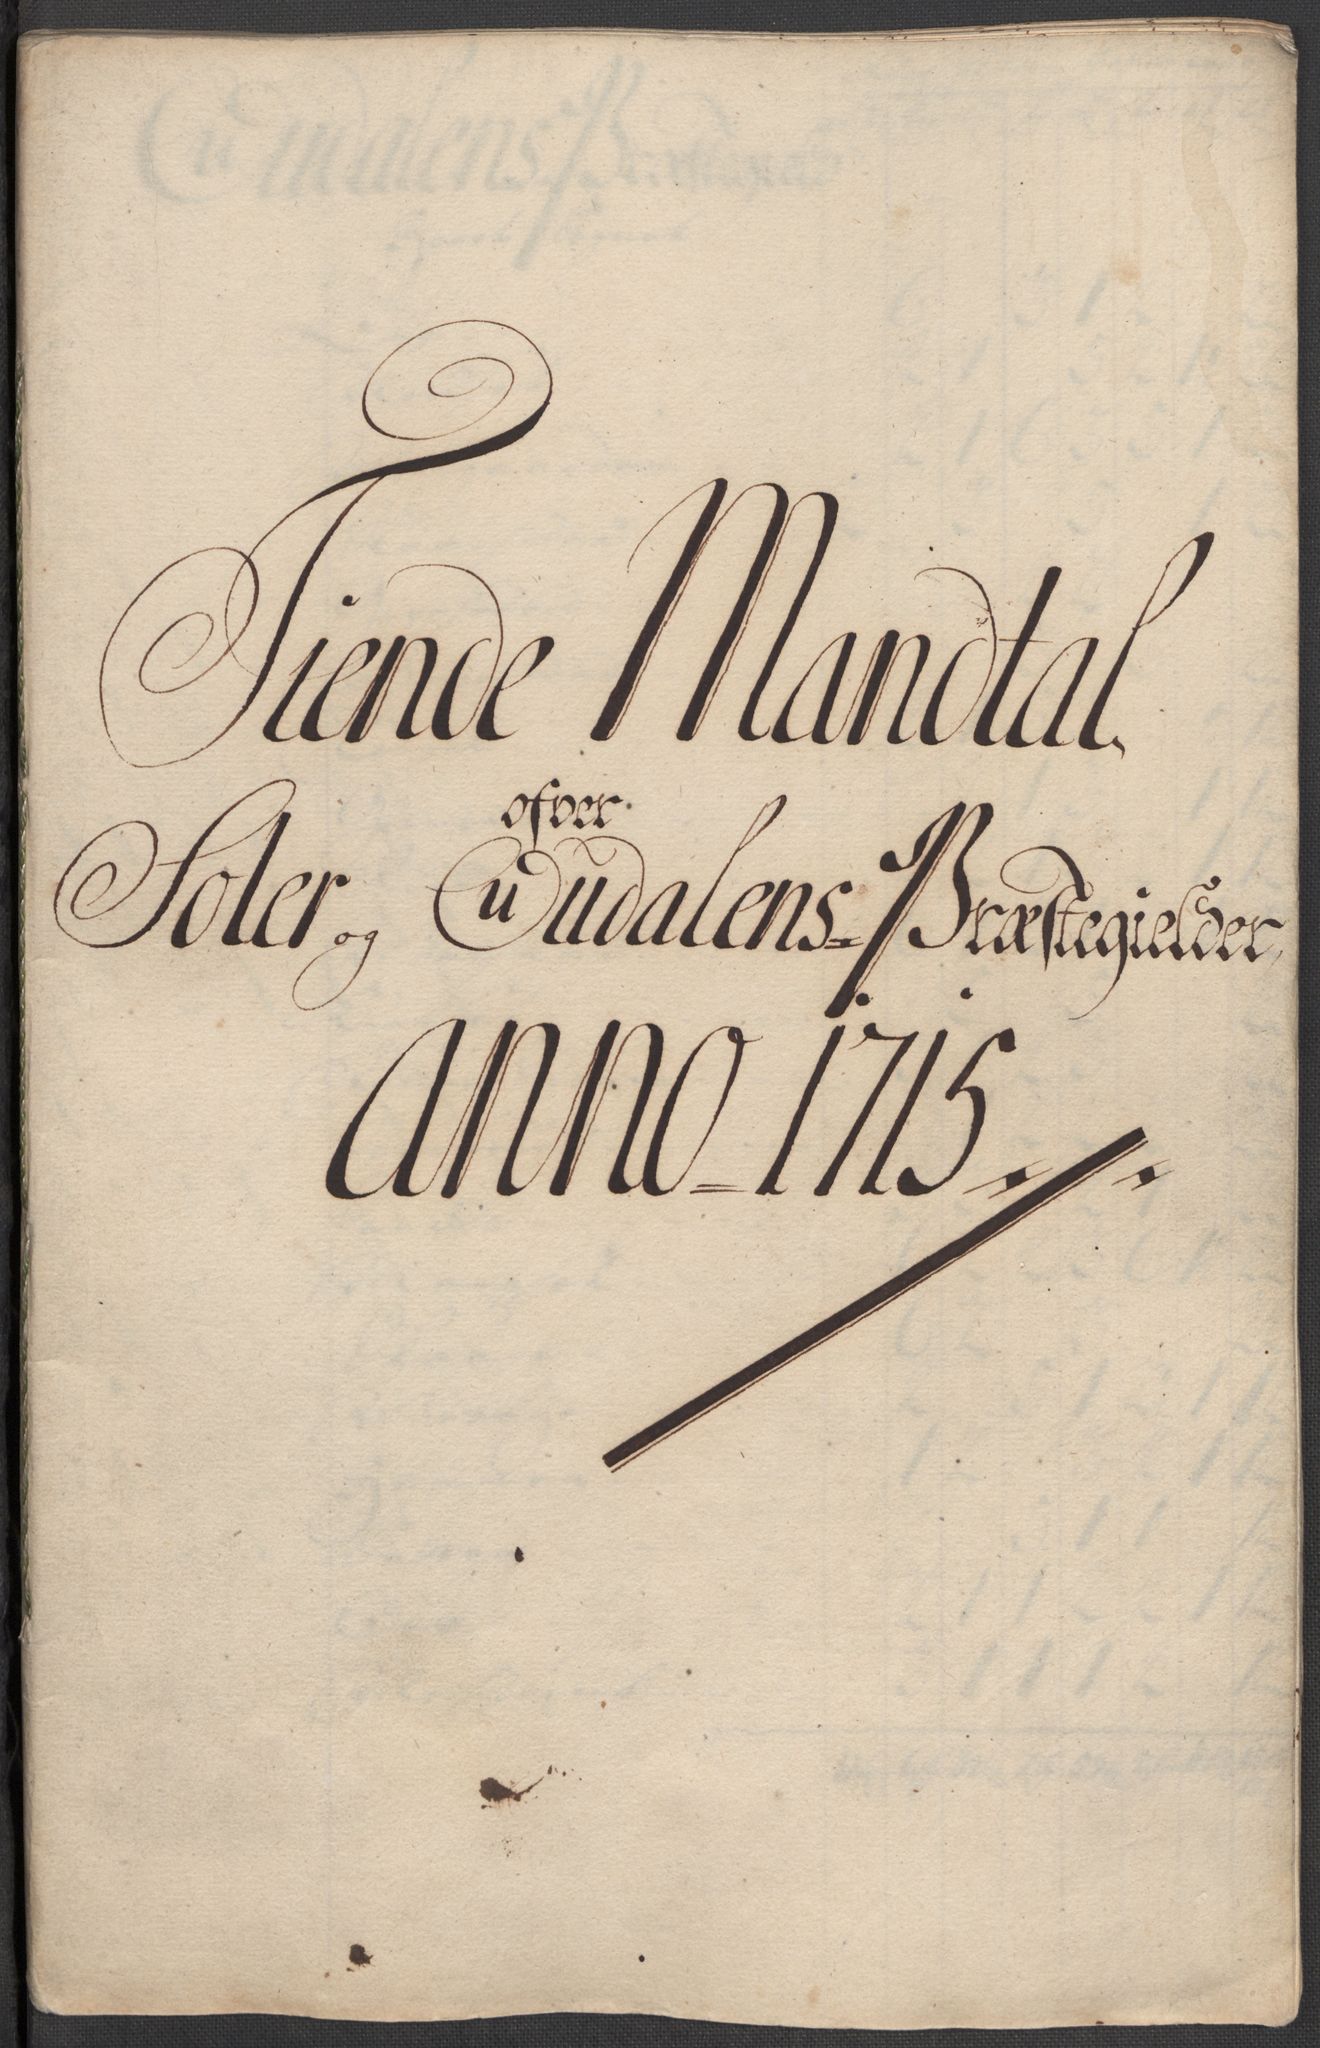 Tiende Mandtal
ofver
Soler og Oudalens Præstegielder
Anno 1715